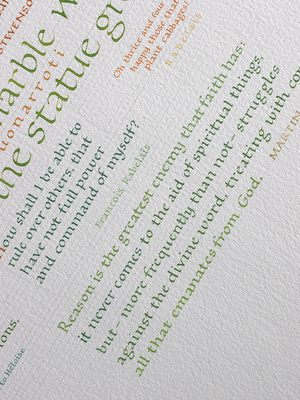 STEVENSO
marble w
uonarroti
the statue gr
Oh thrice and four
happy those that
plant cabbages!
Rabelais
ow shall I be able to
rule over others, that
have not full power
and command of myself?
Francois Rabelais
Reason is the greatest enemy that faith has:
it never comes to the aid of spiritual things,
but – more frequently than not – struggles
against the divine word, treating with co
all that emanates from God.
MARTIN
ons,
to Héloise